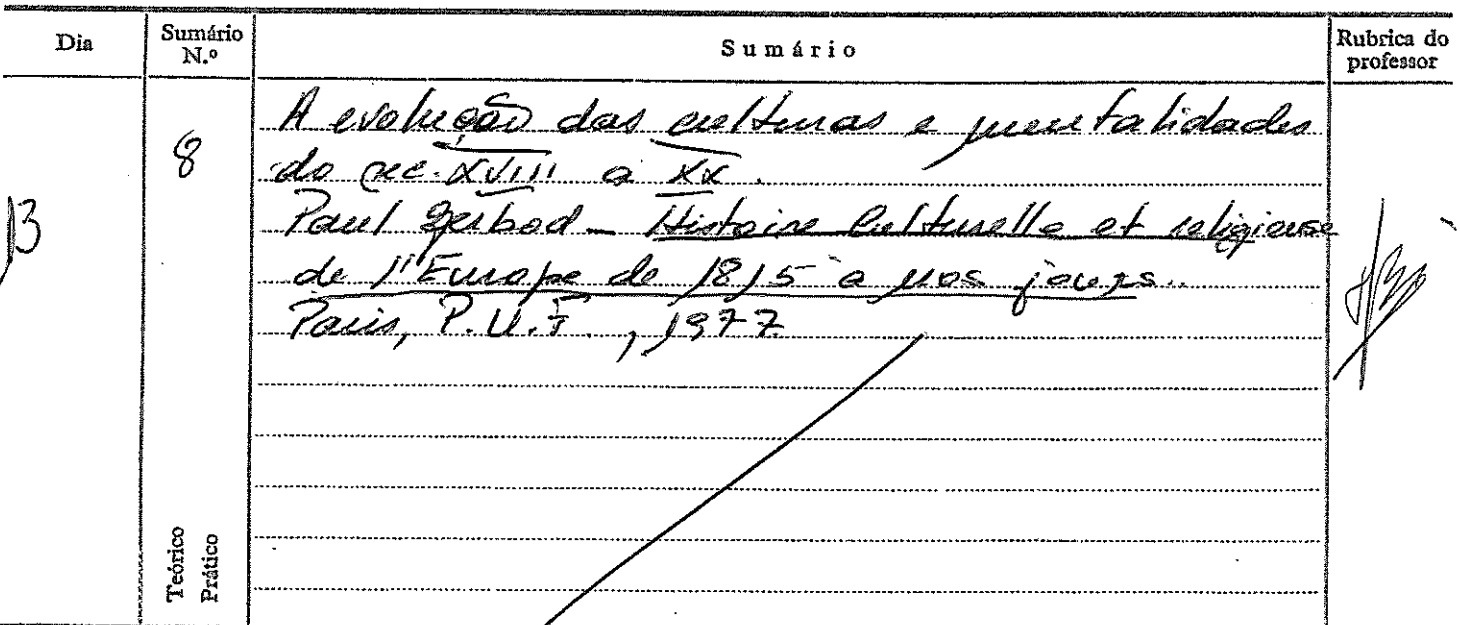 Dia
Sumário N.º
Sumário
Rubrica do professor
13
8
A evolução das culturas e mentalidades
do sec. XVIII a XX.
Paul Gerbod - Histoire Culturelle et religieuse
de l'Europe de 1815 a nos jours.
Paris, P.U.F., 1977
Teórico
Prático